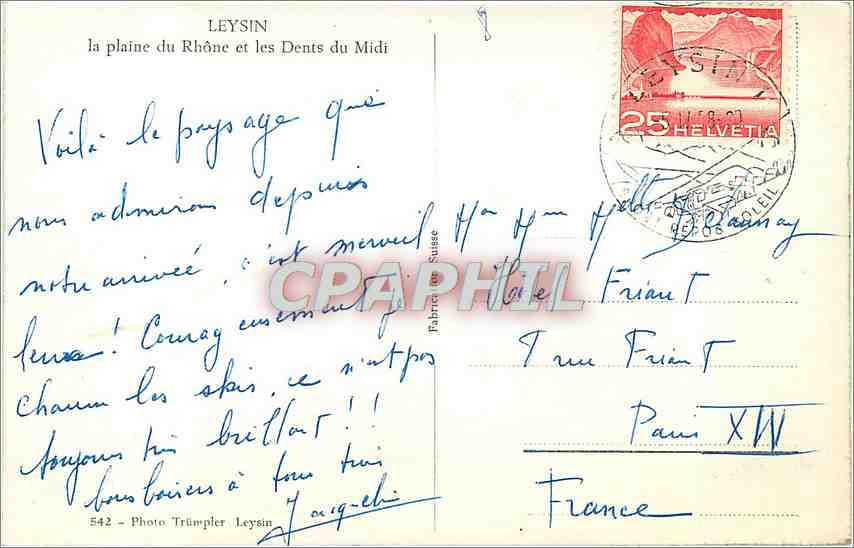 LEYSIN
la plaine du Rhône et les Dents du Midi
Voilà le paysage que
nous admirons depuis
notre arrivée, c'est merveil
leux! Courageusement je
chausse les skis, ce n'est pas
toujours très brillant!!
bons baisers à tous trois
Jacqueline
542 – Photo Trümpler Leysin
Fabrication Suisse
CPAPHIL
25 HELVETIA
LEYSIN
REPOS SOLEIL
Hôtel Friant
rue Friant
Paris XIV
France